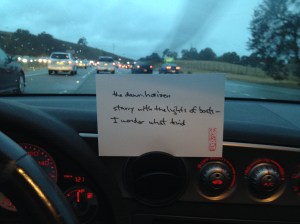 the dawn horizon
starry with the lights of boats—
I wonder what kind